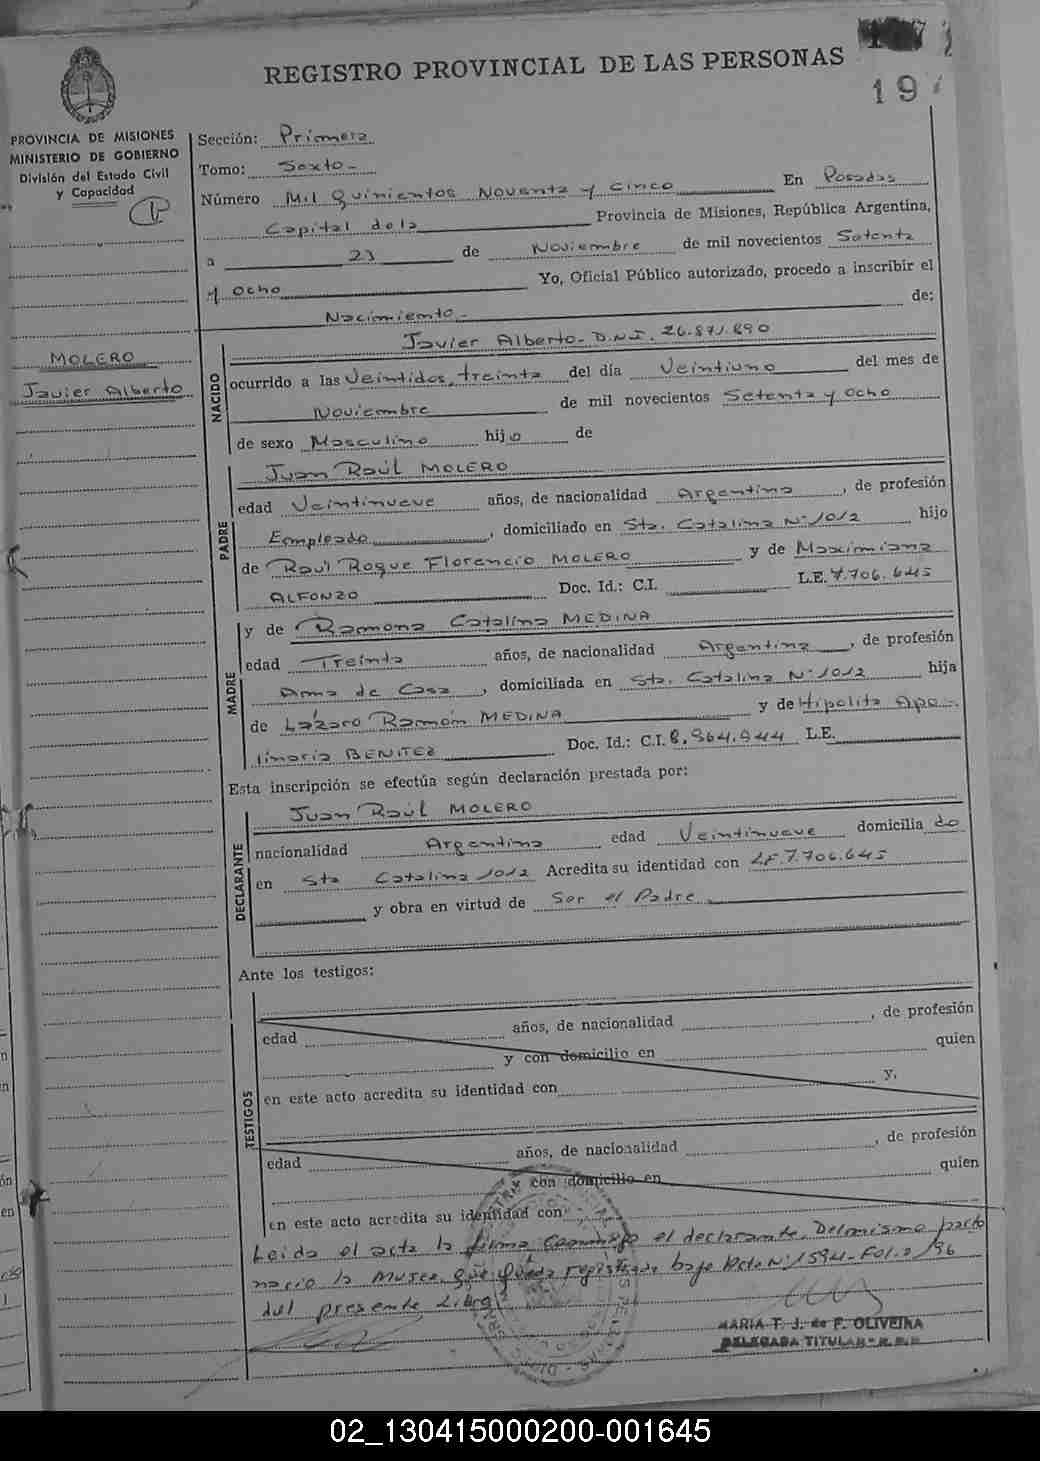 REGISTRO PROVINCIAL DE LAS PERSONAS
197
PROVINCIA DE MISIONES
MINISTERIO DE GOBIERNO
División del Estado Civil
y Capacidad
MOLERO
Javier Alberto
Sección: Primera
Tomo: Sexto-
Número Mil Quinientos Noventa y Cinco En Posadas
Capital de la Provincia de Misiones, República Argentina,
a 23 de Noviembre de mil novecientos Setenta
y Ocho Yo, Oficial Público autorizado, procedo a inscribir el
Nacimiento- de:
NACIDO
Javier Alberto- D.N.I. 26.871.890
ocurrido a las Veintidos, treinta del día Veintiuno del mes de
Noviembre de mil novecientos Setenta y ocho
de sexo Masculino hijo de
PADRE
Juan Raúl MOLERO
edad Veintinueve años, de nacionalidad Argentina, de profesión
Empleado, domiciliado en Sta. Catalina Nº 1012 hijo
de Raúl Roque Florencio MOLERO y de Maximiana
ALFONZO Doc. Id.: C.I. L.E. 7.706.645
MADRE
y de Ramona Catalina MEDINA
edad Treinta años, de nacionalidad Argentina, de profesión
Ama de Casa, domiciliada en Sta. Catalina Nº 1012 hija
de Lázaro Ramón MEDINA y de Hipolita Apo-
linaria BENITEZ Doc. Id.: C.I. 8.964.944 L.E.
Esta inscripción se efectúa según declaración prestada por:
DECLARANTE
Juan Raúl MOLERO
nacionalidad Argentina edad Veintinueve domiciliado
en Sta Catalina 1012 Acredita su identidad con LE 7.706.645
y obra en virtud de Ser el Padre
Ante los testigos:
TESTIGOS
edad años, de nacionalidad , de profesión
y con domicilio en quien
en este acto acredita su identidad con y,
edad años, de nacionalidad , de profesión
y con domicilio en quien
en este acto acredita su identidad con
Leida el acta la firma conmigo el declarante. Del mismo parto
nacio la que queda registrada bajo Acta Nº 1594- Fol. 2/96
del presente Libro
MARIA T. J. de F. OLIVEIRA
DELEGADA TITULAR
02_130415000200-001645